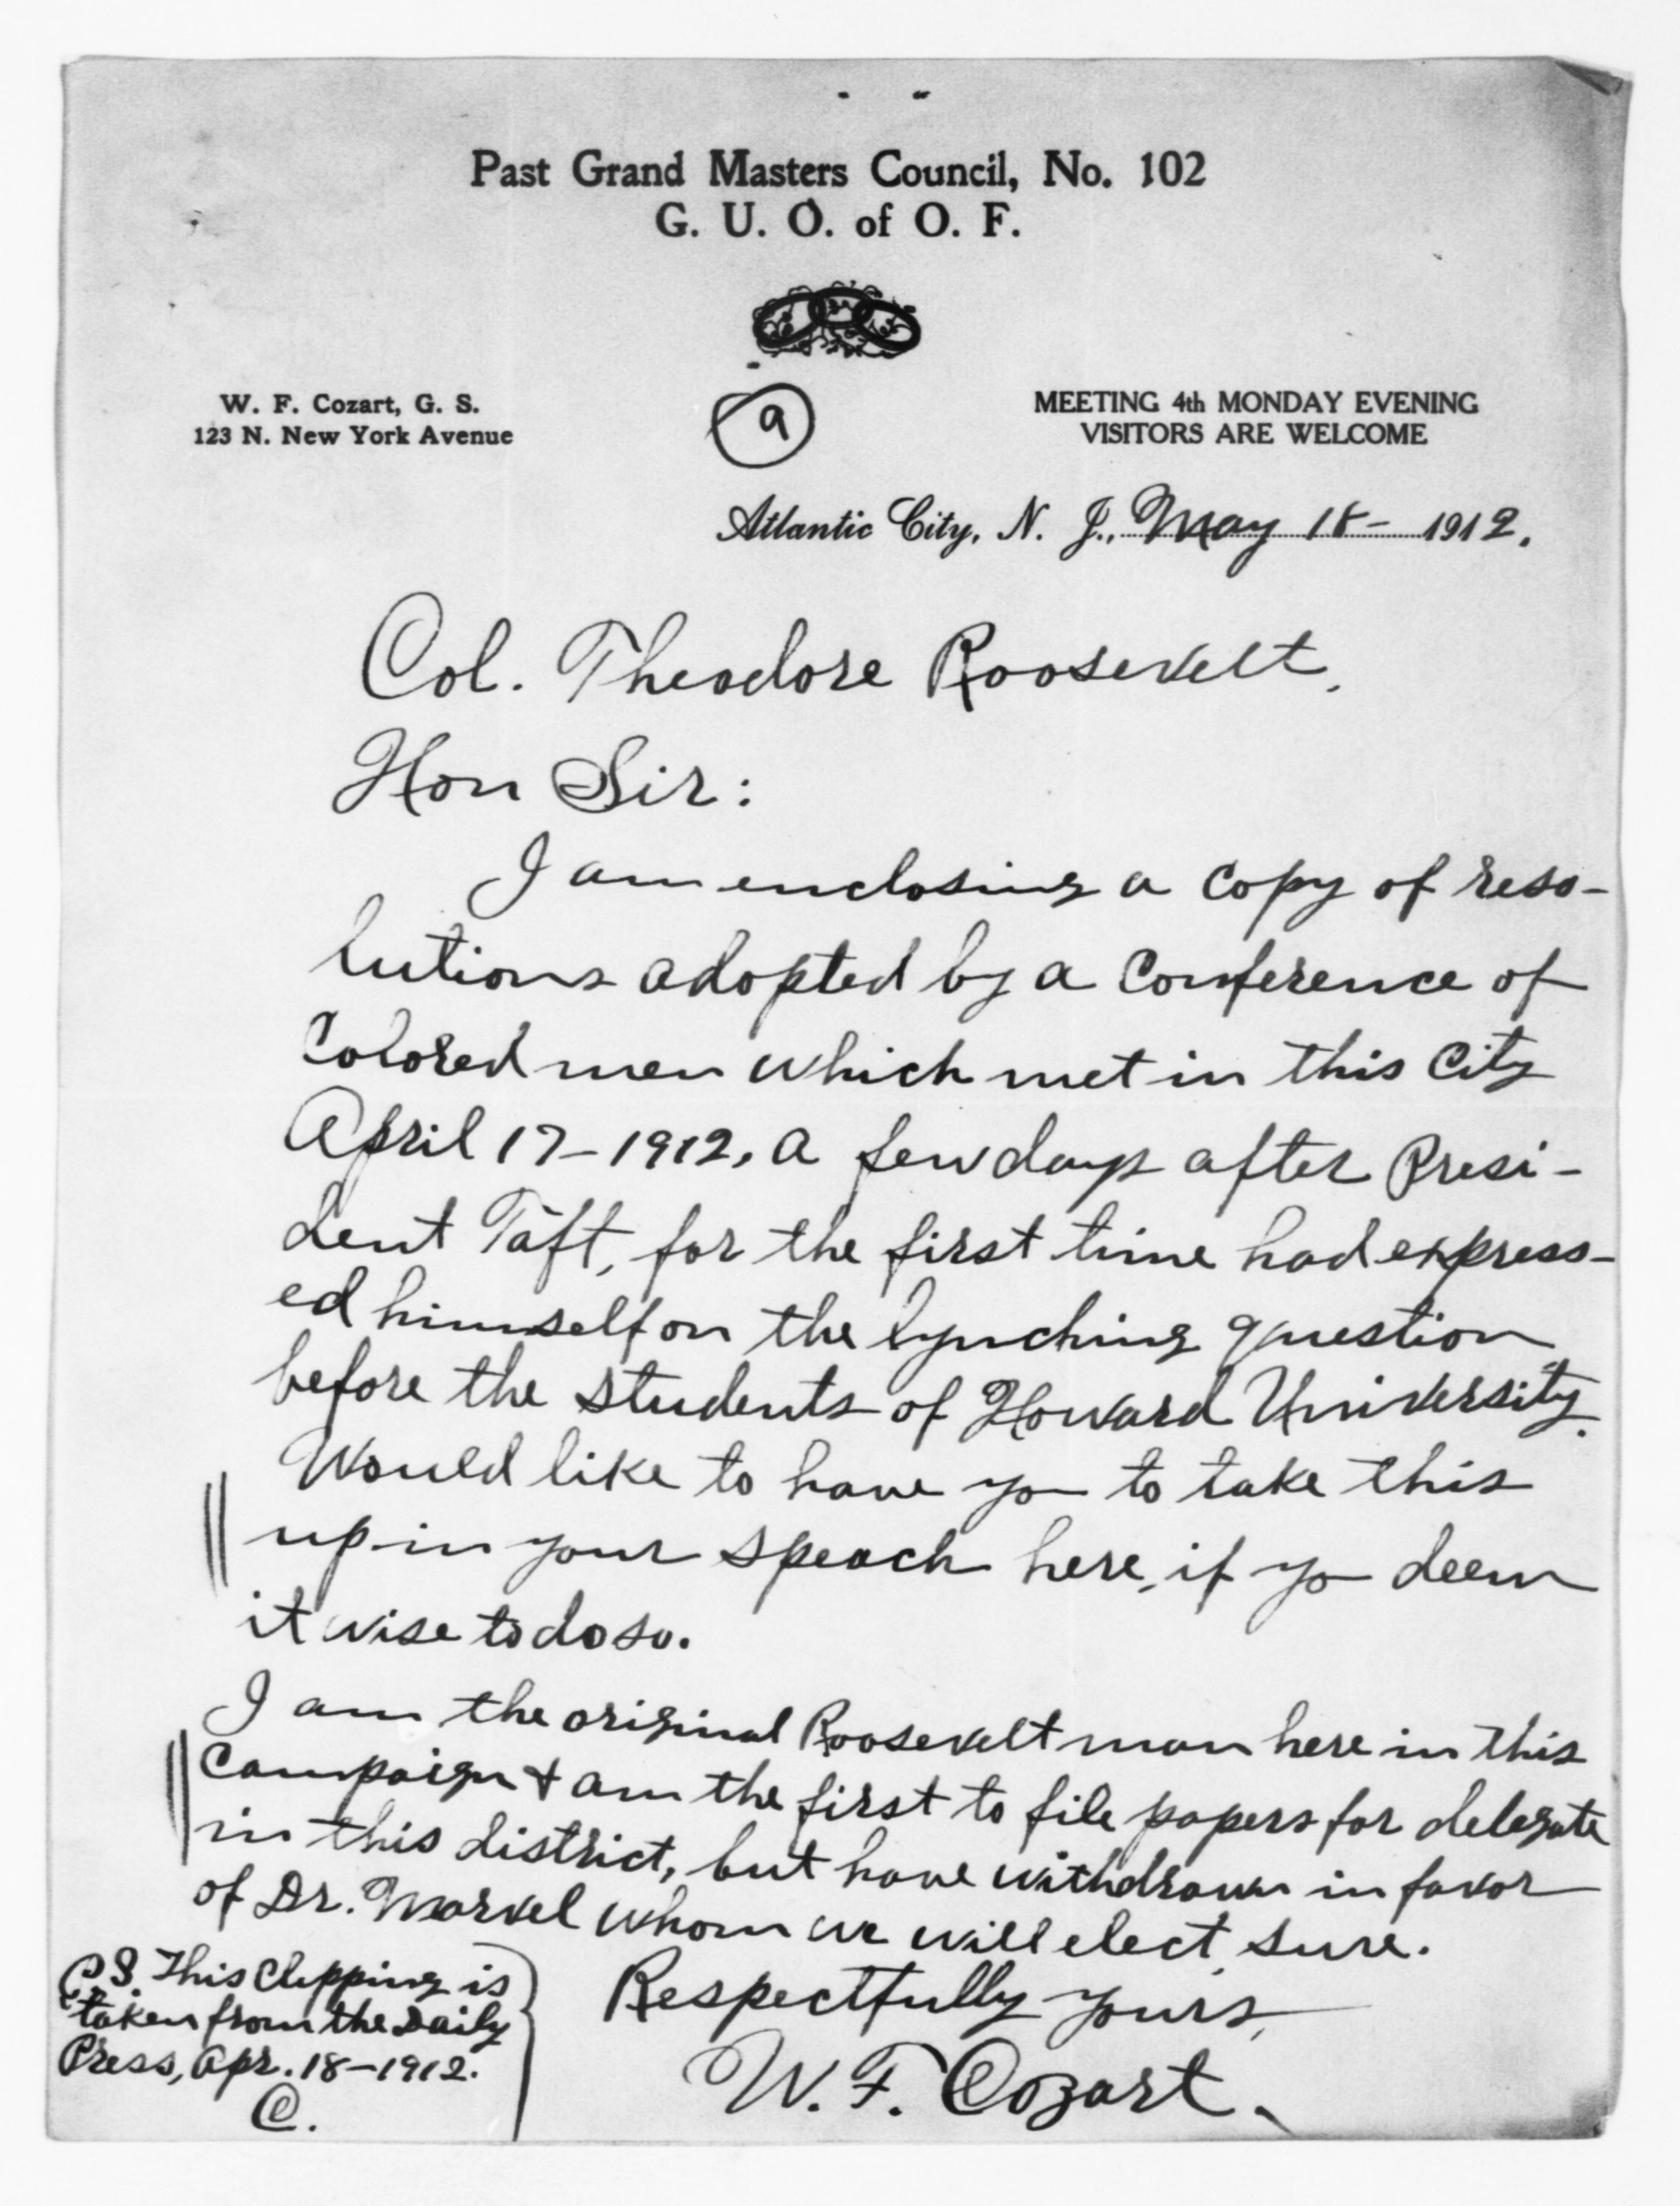 Past Grand Masters Council, No. 102
G. U. O. of O. F.
W. F. Cozart, G. S.
123 N. New York Avenue
9
MEETING 4th MONDAY EVENING
VISITORS ARE WELCOME
Atlantic City, N. J., May 18- 1912.
Col. Theodore Roosevelt,
Hon Sir:
I am enclosing a copy of reso-
lutions adopted by a Conference of
Colored men which met in this City
April 17-1912, a few days after Presi-
dent Taft, for the first time had express-
ed himself on the lynching question
before the students of Howard University.
Would like to have yo to take this
up in your speach here, if yo deem
it wise to do so.
I am the original Roosevelt man here in this
Campaign & am the first to file papers for delegate
in this district, but have withdrawn in favor
of Dr. Marvel whom we will elect, sure.
Respectfully yours,
W. F. Cozart.
P.S. This Clipping is
taken from the Daily
Press, Apr. 18-1912.
C.